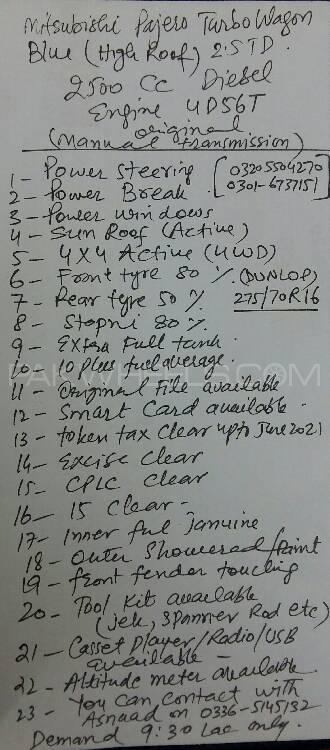 Mitsubishi Pajero Turbo Wagon
Blue (High Roof) 2.5TD.
2500 cc Diesel
Engine 4D56T
original
(Manual Transmission)
1- Power Steering [03205504270
2- Power Break [0301-6737151]
3- Power windows
4- Sun Roof (Active)
5- 4x4 Active (4WD)
6- Front tyre 80 % (DUNLOP)
7- Rear tyre 50 % 275/70R16
8- Stepni 80 %
9- Extra Full tank
10- 10 plus fuel average.
PAKWHEELS.COM
11- Original File available
12- Smart Card available.
13- token tax clear upto June 2021
14- Excise Clear
15- CPLC Clear
16- 15 Clear -
17- Inner ful Januine
18- Outer Showered/Paint
19- front fender touching
20- Tool Kit available
(jek, Spanner Rod etc)
21- Casset Player/Radio/USB
available -
22- Altitude meter available
23- You can contact with
Asnaad on 0336-5145132
Demand 9:30 Lac only.